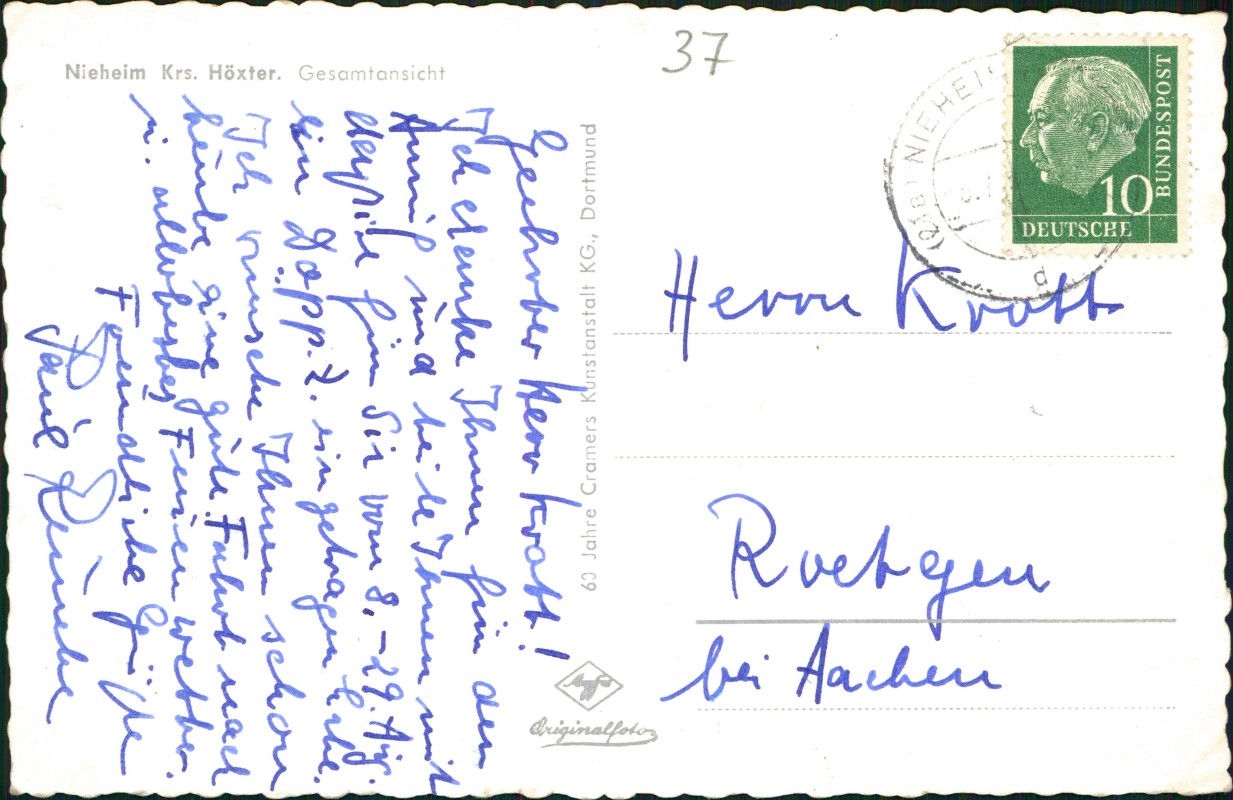 Nieheim Krs. Höxter. Gesamtansicht
Geehrter Herr Krott!
Ich danke Ihnen für den
Anruf und teile Ihnen mit
daß ich für Sie vom 8. - 29. Aug.
ein Dopp. Z. eingetragen habe.
Ich wünsche Ihnen schon
heute eine gute Fahrt nach
u. allerbestes Ferienwetter.
Freundliche Grüße
Paul
60 Jahre Cramers Kunstanstalt KG., Dortmund
Agfa
Originalfoto
37
(21a) NIEHEIM
d
10
DEUTSCHE
BUNDESPOST
Herrn Krott
Roetgen
bei Aachen